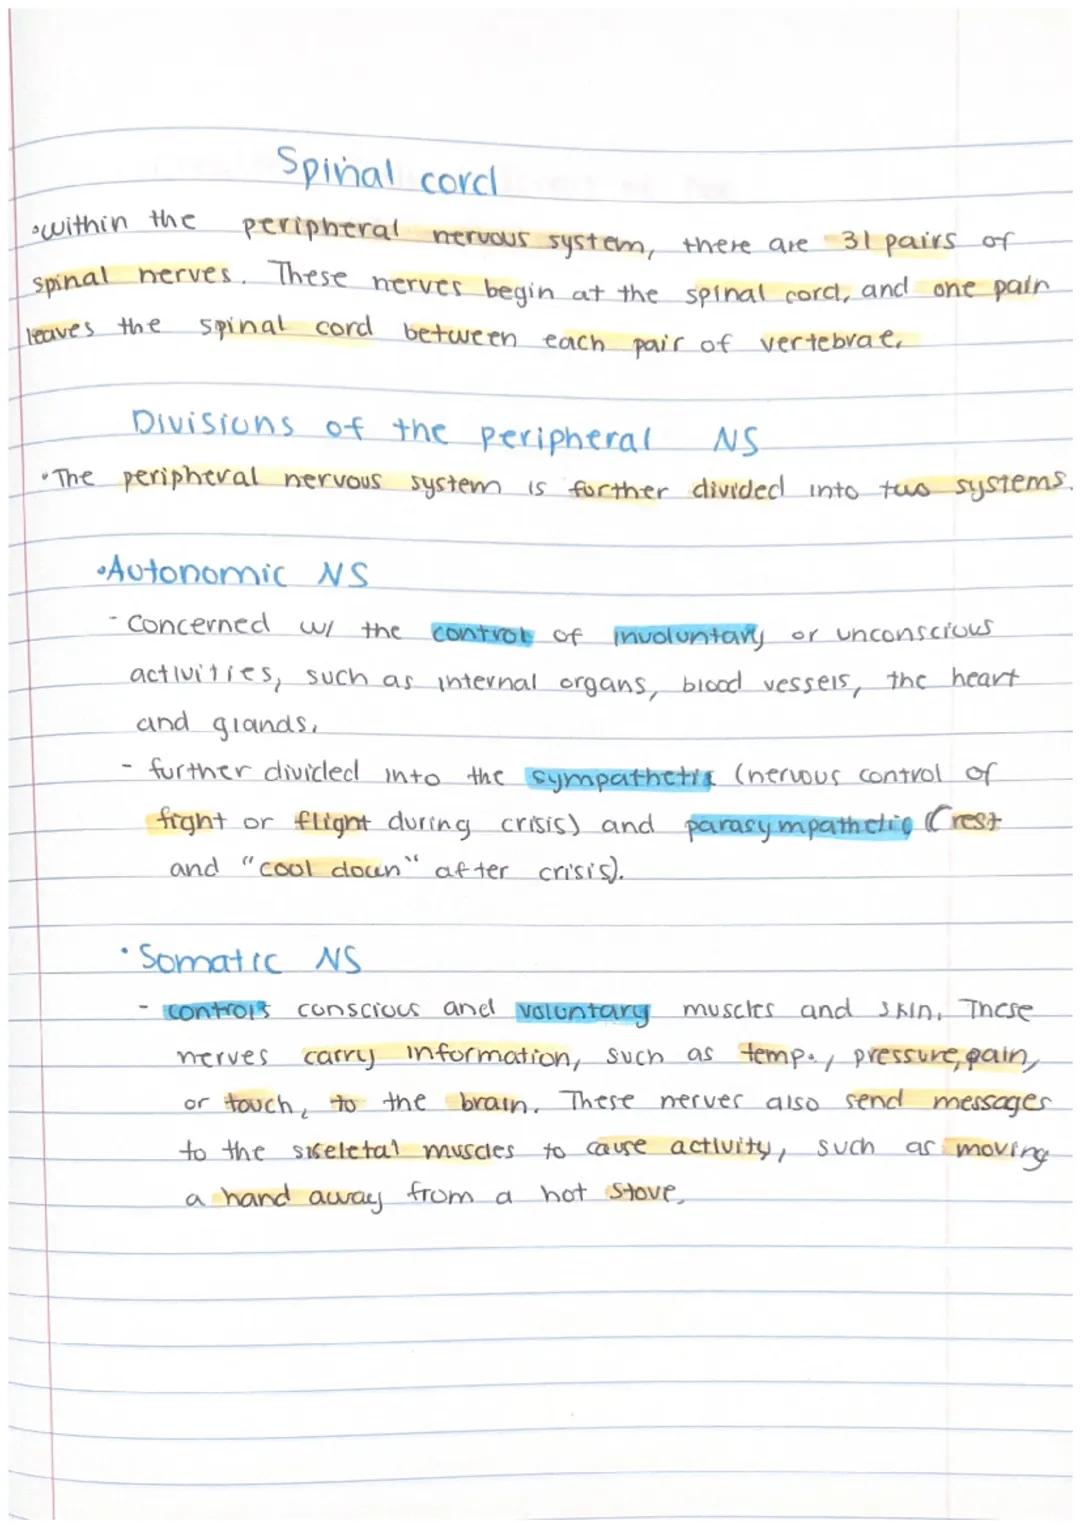 Spinal cord
•within the peripheral nervous system, there are 31 pairs of
spinal nerves. These nerves begin at the spinal cord, and one pair
leaves the spinal cord between each pair of vertebrae.
Divisions of the peripheral NS
•The peripheral nervous system is further divided into two systems.
•Autonomic NS
- Concerned w/ the control of involuntary or unconscious
activities, such as internal organs, blood vessels, the heart
and glands.
- further divided into the sympathetic (nervous control of
fight or flight during crisis) and parasympathetic (rest
and "cool down" after crisis).
•Somatic NS
- controls conscious and voluntary muscles and skin. These
nerves carry information, such as temp., pressure, pain,
or touch, to the brain. These nerves also send messages
to the skeletal muscles to cause activity, such as moving
a hand away from a hot stove.